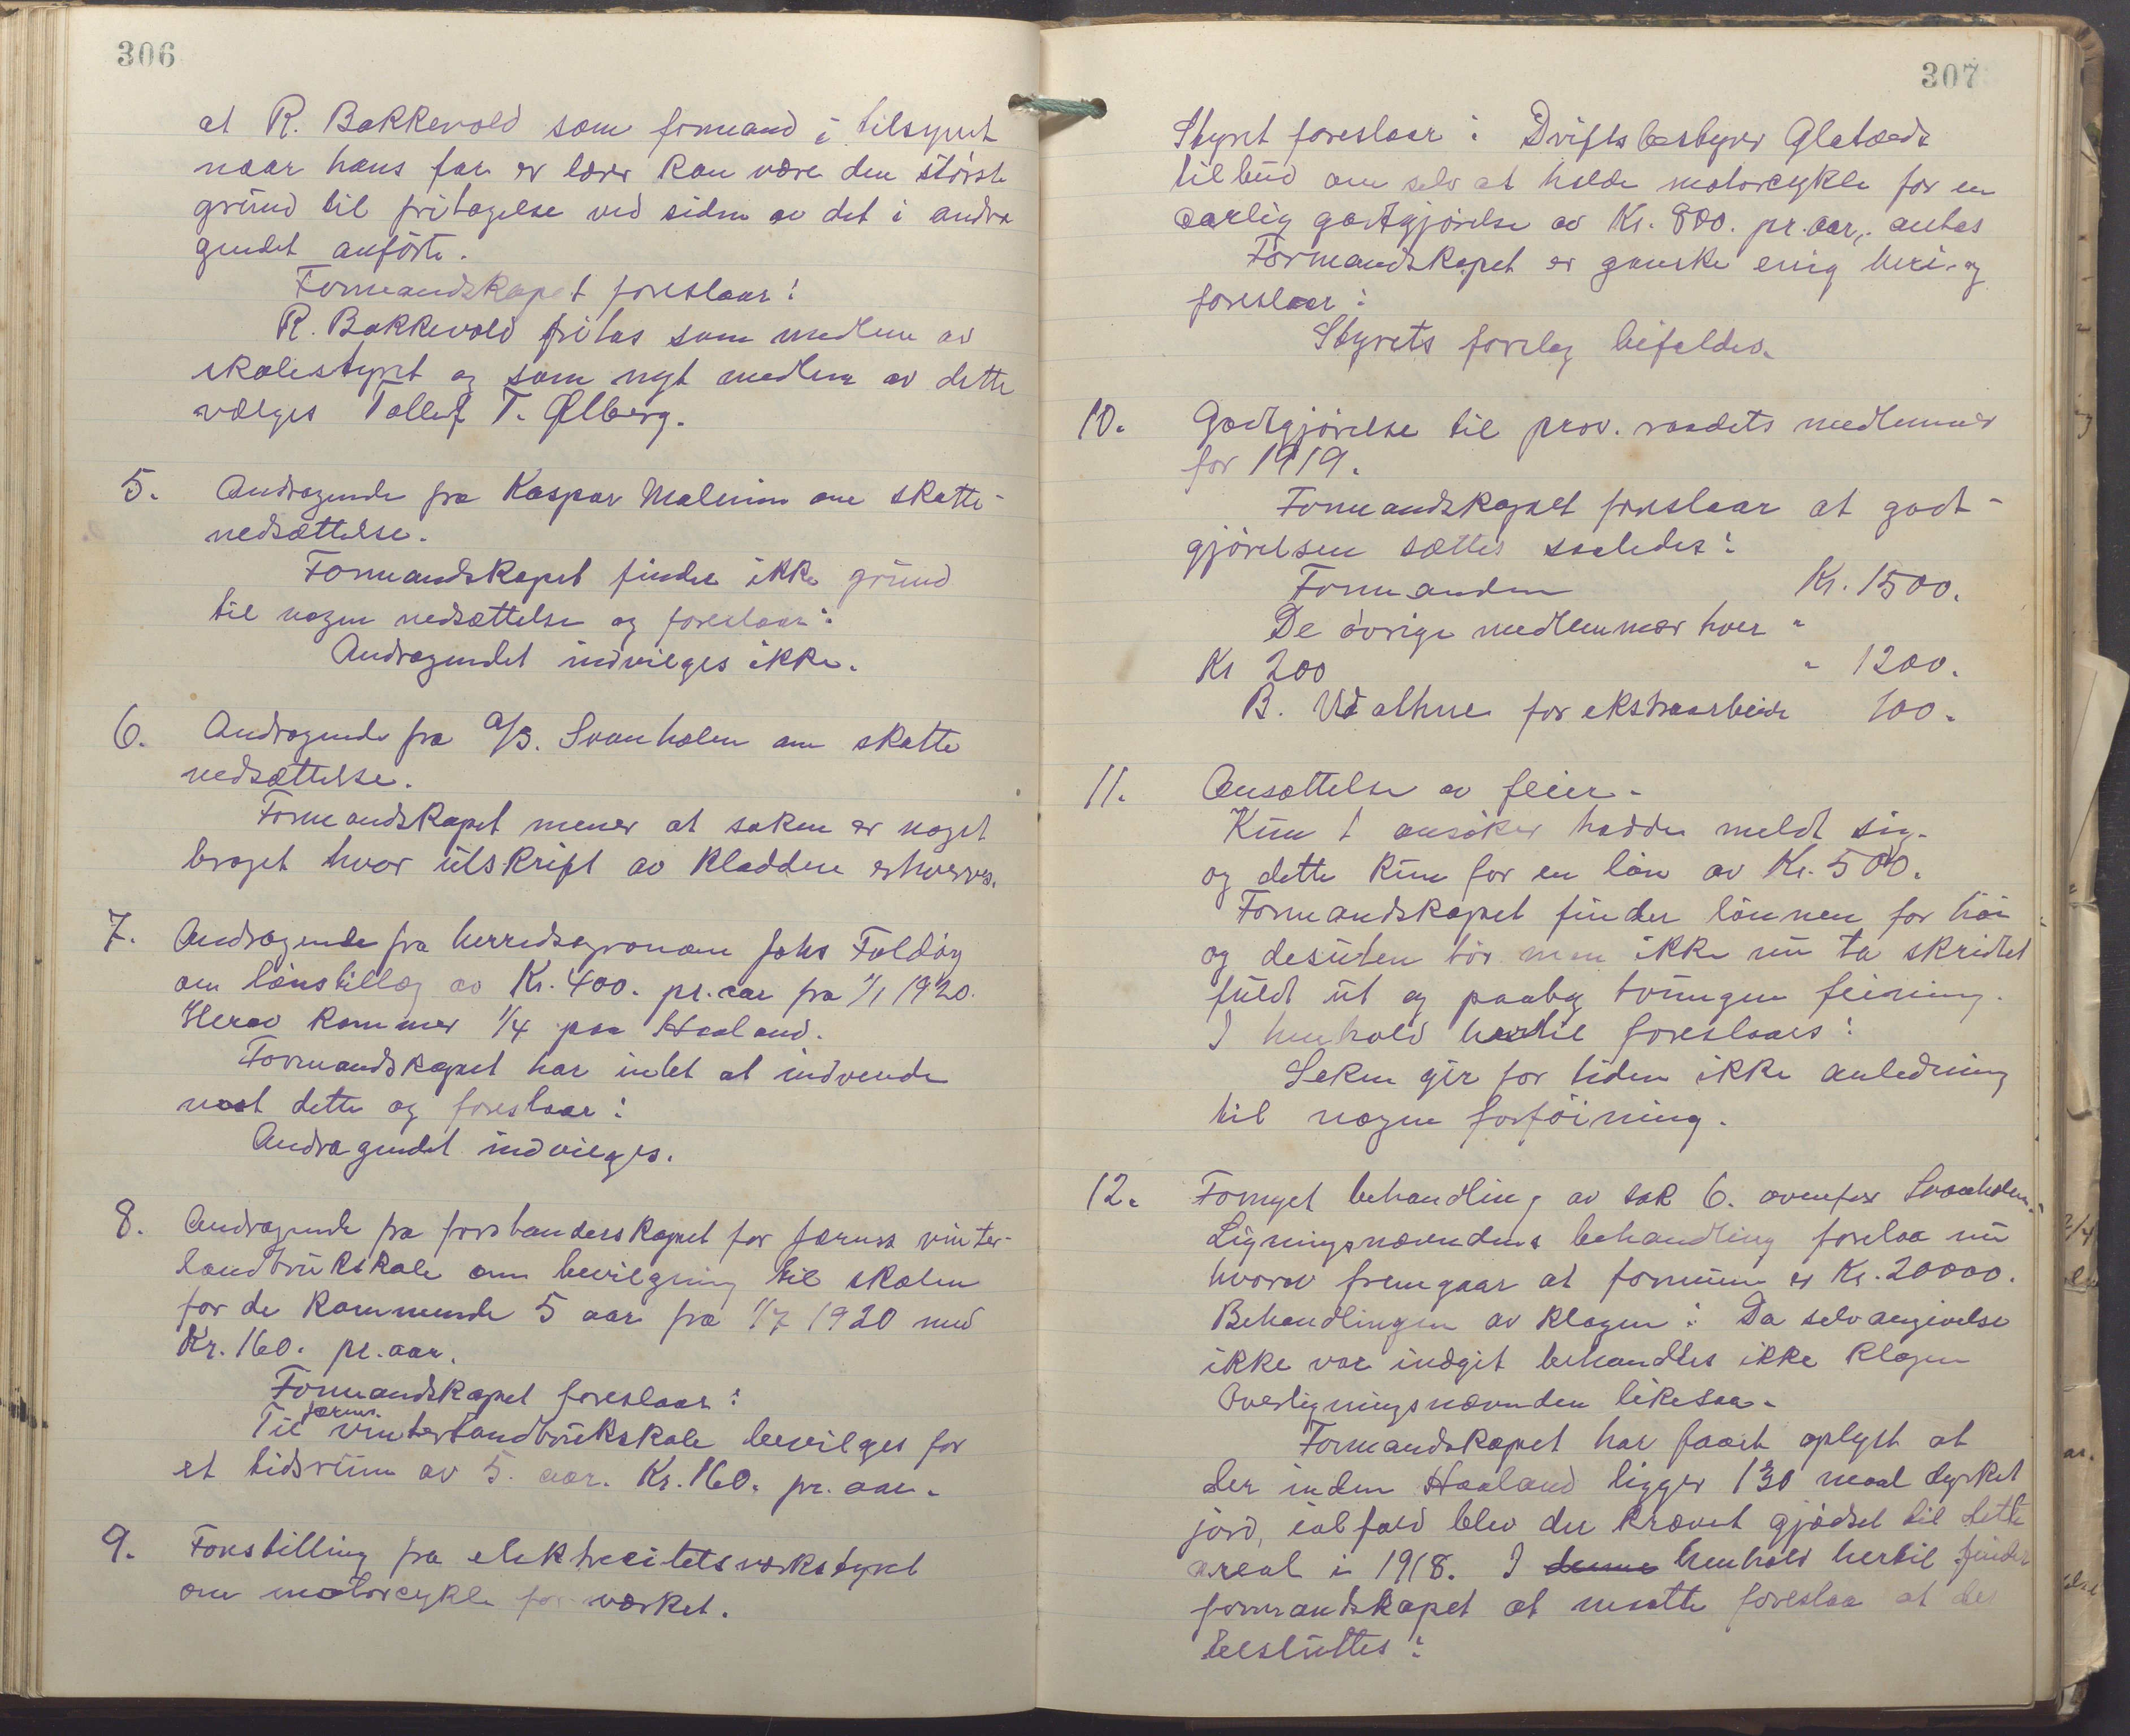 306
at R. Bakkevold som formand i tilsynet
naar hans far er lærer kan være den største
grund til fritagelse ved siden av det i andra
gendet anförte.
Formandskapet foreslaar:
R. Bakkevold fritas som medlem av
skolestyret og som nyt medlem av dette
vælges Tollef T. Ølberg.
5. Andragende fra Kaspar Malmin om skatte-
nedsættelse.
Formandskapet finder ikke grund
til nogen nedsættelse og foreslaar:
Andragendet indvilges ikke.
6. Andragende fra A/S. Svanholm om skatte
nedsættelse.
Formandskapet mener at saken er noget
braget hvor utskrift av kladden erhverves.
7. Andragende fra herredsagronom Johs Foldøy
om lønstillæg av Kr. 400. pr. aar fra 1/1 1920.
Herav kommer 1/4 paa Haaland.
Formandskapet har intet at indvende
mot dette og foreslaar:
Andragendet indvilges.
8. Andragende fra forstanderskapet for Jærens vinter-
landbrukskole om bevilgning til skolen
for de kommende 5 aar fra 1/7 1920 med
Kr. 160. pr. aar.
Formandskapet foreslaar:
Til Jærens vinterlandbrukskole bevilges for
et tidsrum av 5. aar. Kr. 160. pr. aar.
9. Forestilling fra elektricitetsverkstyret
om motorcykle for verket.
307
Styret foreslaar: Driftsbestyrer Gletads
tilbud om selv at holde motorcykle for en
aarlig godtgjørelse av Kr. 800. pr. aar, antas
Formandskapet er ganske enig heri og
foreslaar:
Styrets forslag bifaldes.
10. Godtgjørelse til prov. raadets medlemmer
for 1919.
Formandskapet foreslaar at godt-
gjørelsen sættes saaledes:
Formanden Kr. 1500.
De övrige medlemmer hver "
Kr 200 " 1200.
B. Vdalhue for ekstraarbeide 100.
11. Ansættelse av feier.
Kun 1 ansøker hadde meldt sig.
og dette kun for en løn av Kr. 500.
Formandskapet finder lønnen for høi
og desuten bør man ikke nu ta skridtet
fuldt ut og paaby tvungen feiening.
I henhold hertil foreslaaes:
Saken gir for tiden ikke anledning
til nogen forföining.
12. Fornyet behandling av sak 6. ovenfor Svanholm.
Ligningsnævndens behandling forelaa nu
hvorav fremgaar at formuen er Kr. 20000.
Behandlingen av klagen: Da selvangivelse
ikke var indgit behandles ikke klagen
Overligningsnævnden likesaa.
Formandskapet har faaet oplyst at
der inden Haaland ligger 130 maal dyrket
jord, ialfald blev der krævet gjødsel til dette
areal i 1918. I denne henhold hertil finder
formandskapet at maatte foreslaa at det
besluttes: